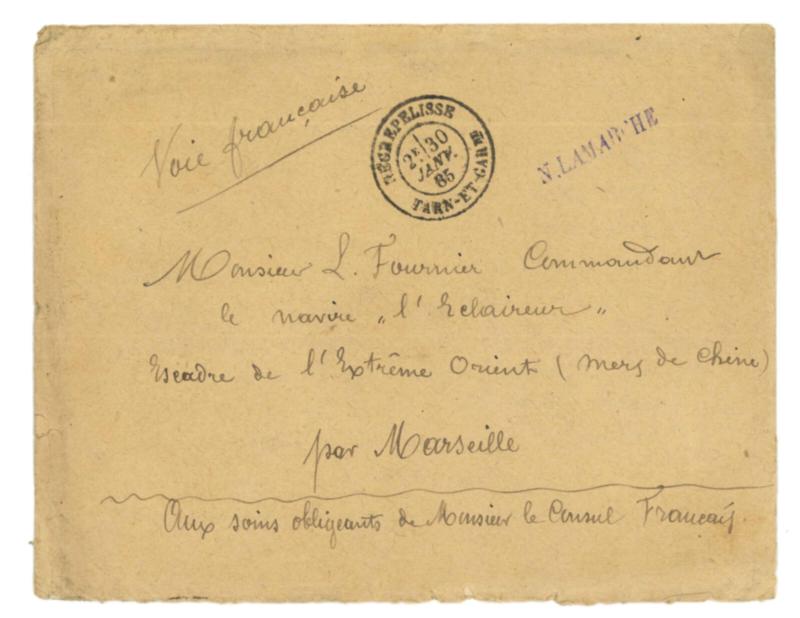 Voie française
NÉGREPELISSE
2E 30
JANV.
85
TARN-ET-GARNNE
N. LAMARCHE
Monsieur L. Fournier Commandant
le navire „ l'Eclaireur „
Escadre de l'Extrême Orient ( Mers de Chine )
par Marseille
Aux soins obligeants de Monsieur le Consul Français.